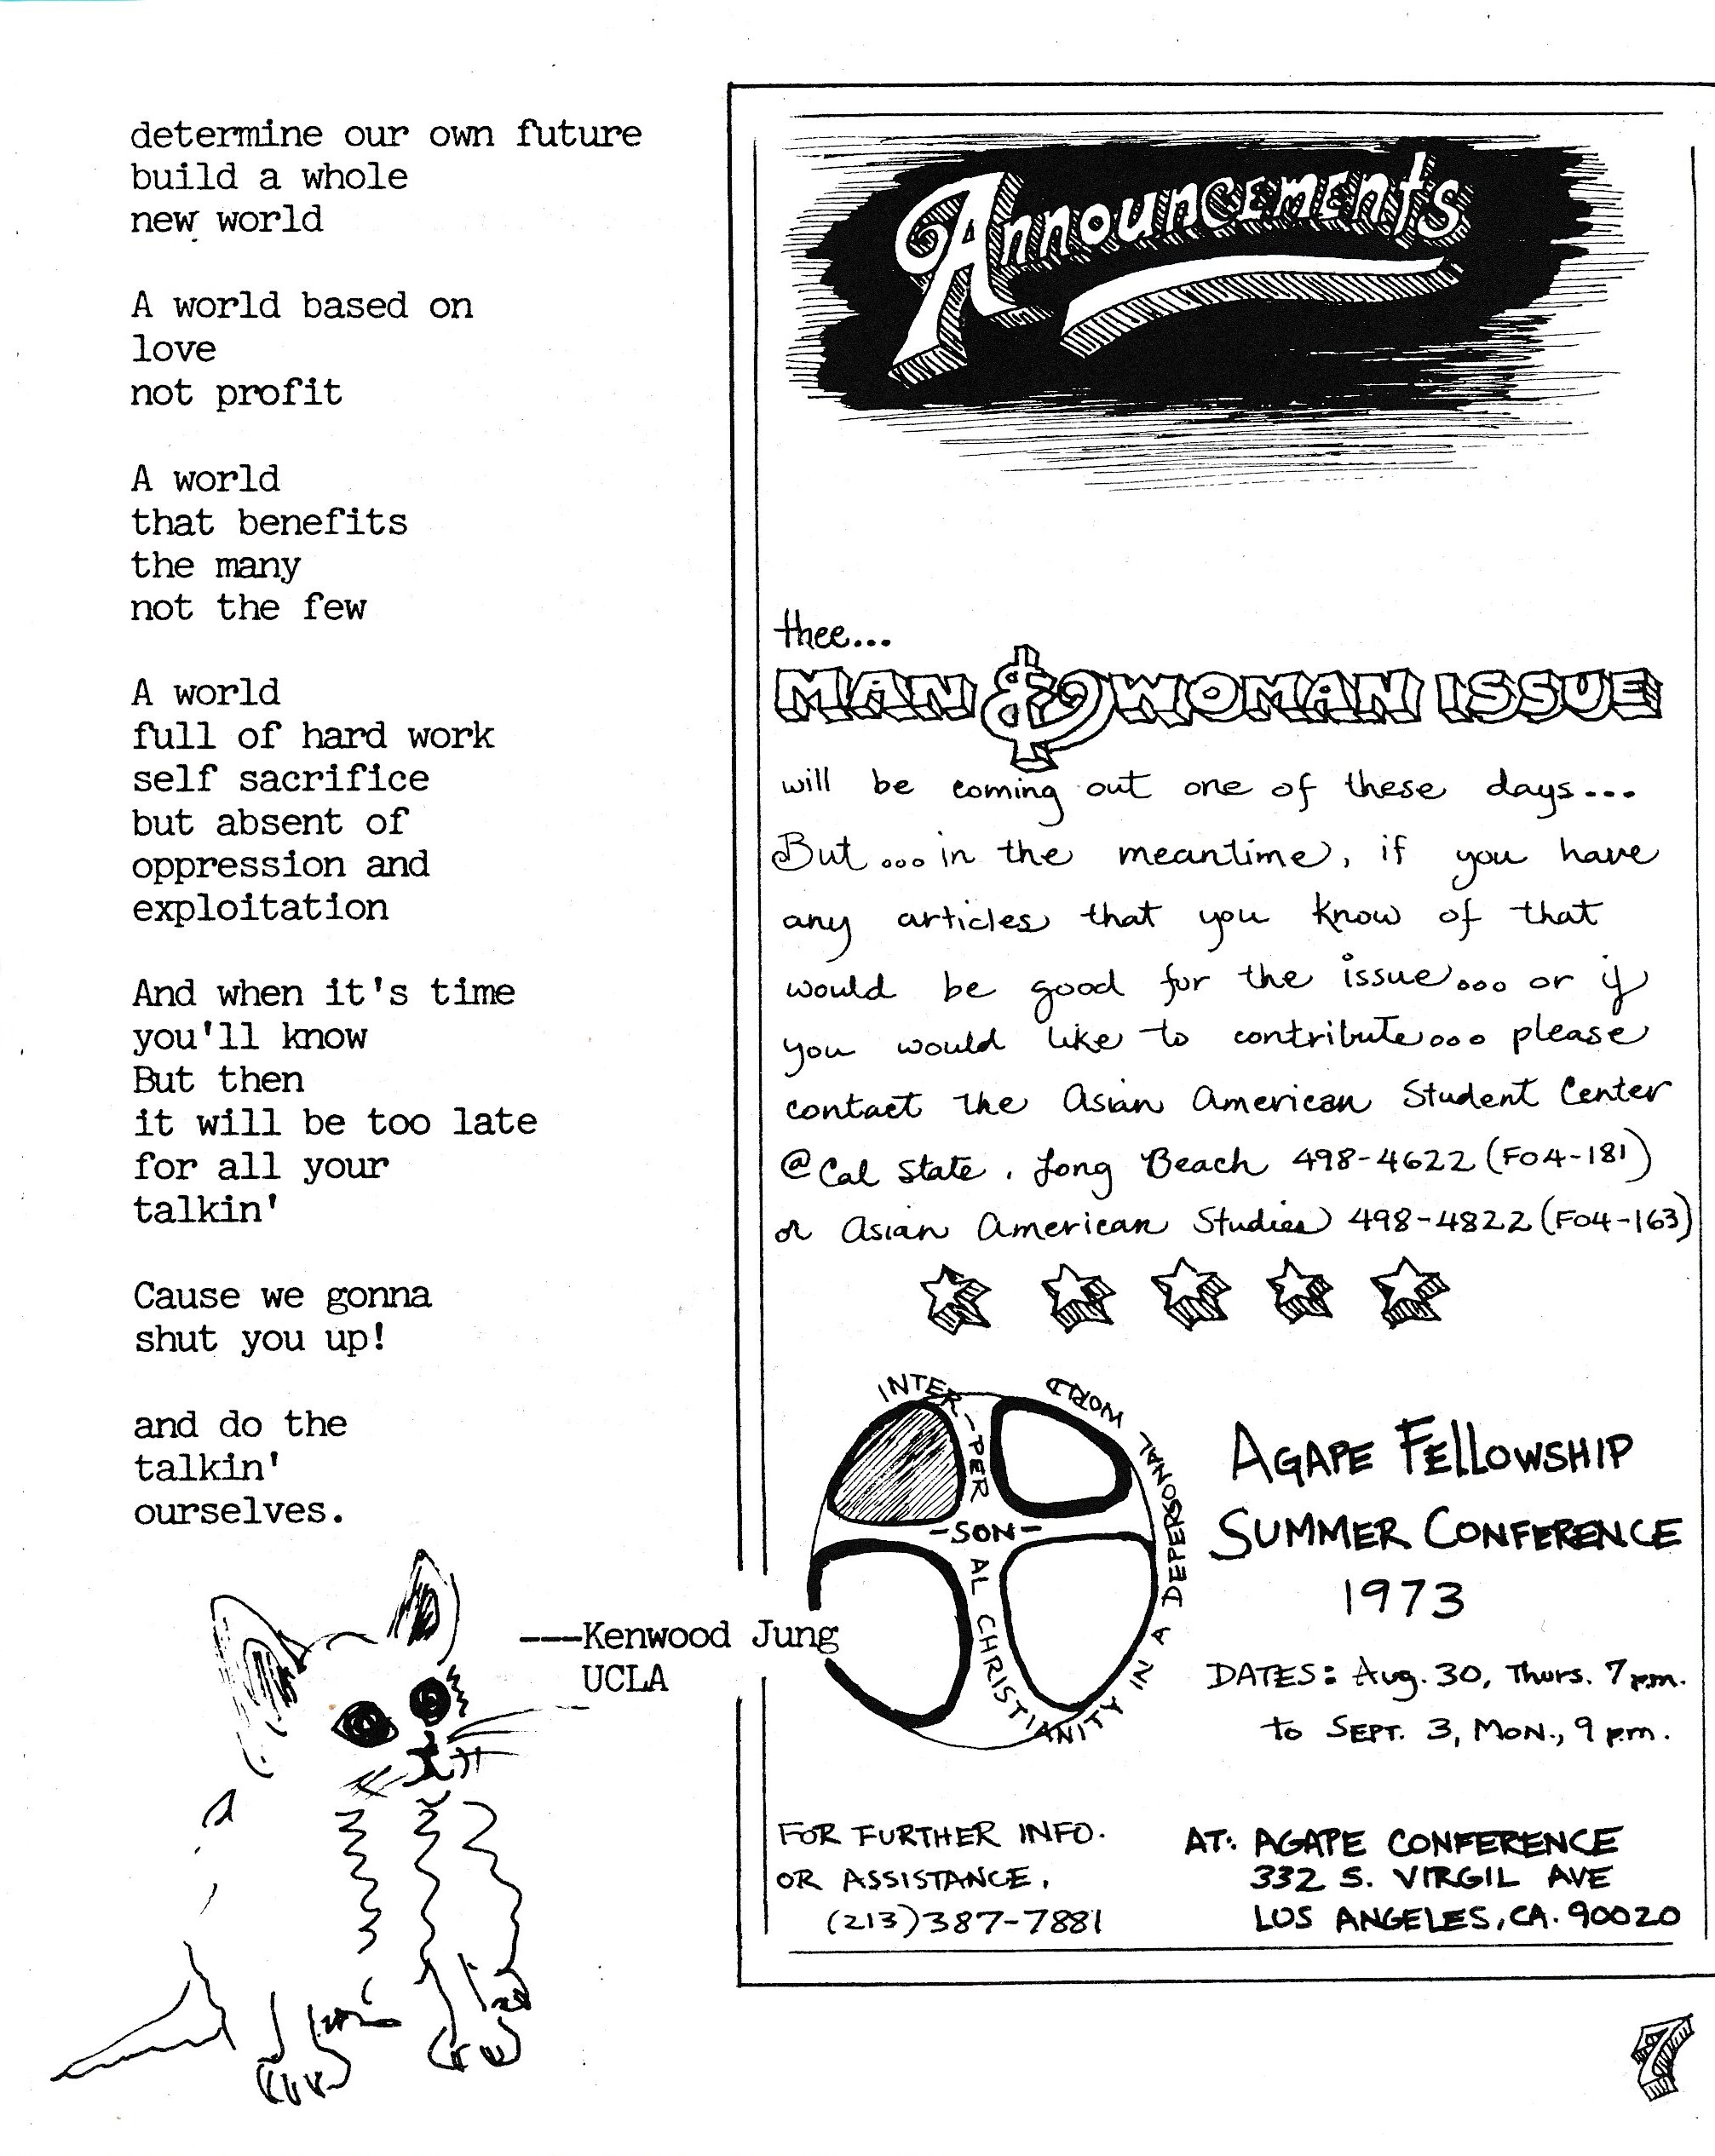 determine our own future
build a whole
new world
A world based on
love
not profit
A world
that benefits
the many
not the few
A world
full of hard work
self sacrifice
but absent of
oppression and
exploitation
And when it's time
you'll know
But then
it will be too late
for all your
talkin'
Cause we gonna
shut you up!
and do the
talkin'
ourselves.
---Kenwood Jung
UCLA
Announcements
thee...
MAN & WOMAN ISSUE
will be coming out one of these days...
But...in the meantime, if you have
any articles that you know of that
would be good for the issue... or if
you would like to contribute... please
contact the Asian American Student Center
@ Cal State, Long Beach 498-4622 (FO4-181)
or Asian American Studies 498-4822 (FO4-163)
INTER-PER-SON-AL CHRISTIANITY IN A DEPERSONAL WORLD
AGAPE FELLOWSHIP
SUMMER CONFERENCE
1973
DATES: Aug. 30, Thurs. 7 p.m.
to SEPT. 3, MON., 9 p.m.
FOR FURTHER INFO.
OR ASSISTANCE,
(213)387-7881
AT: AGAPE CONFERENCE
332 S. VIRGIL AVE
LOS ANGELES, CA. 90020
7